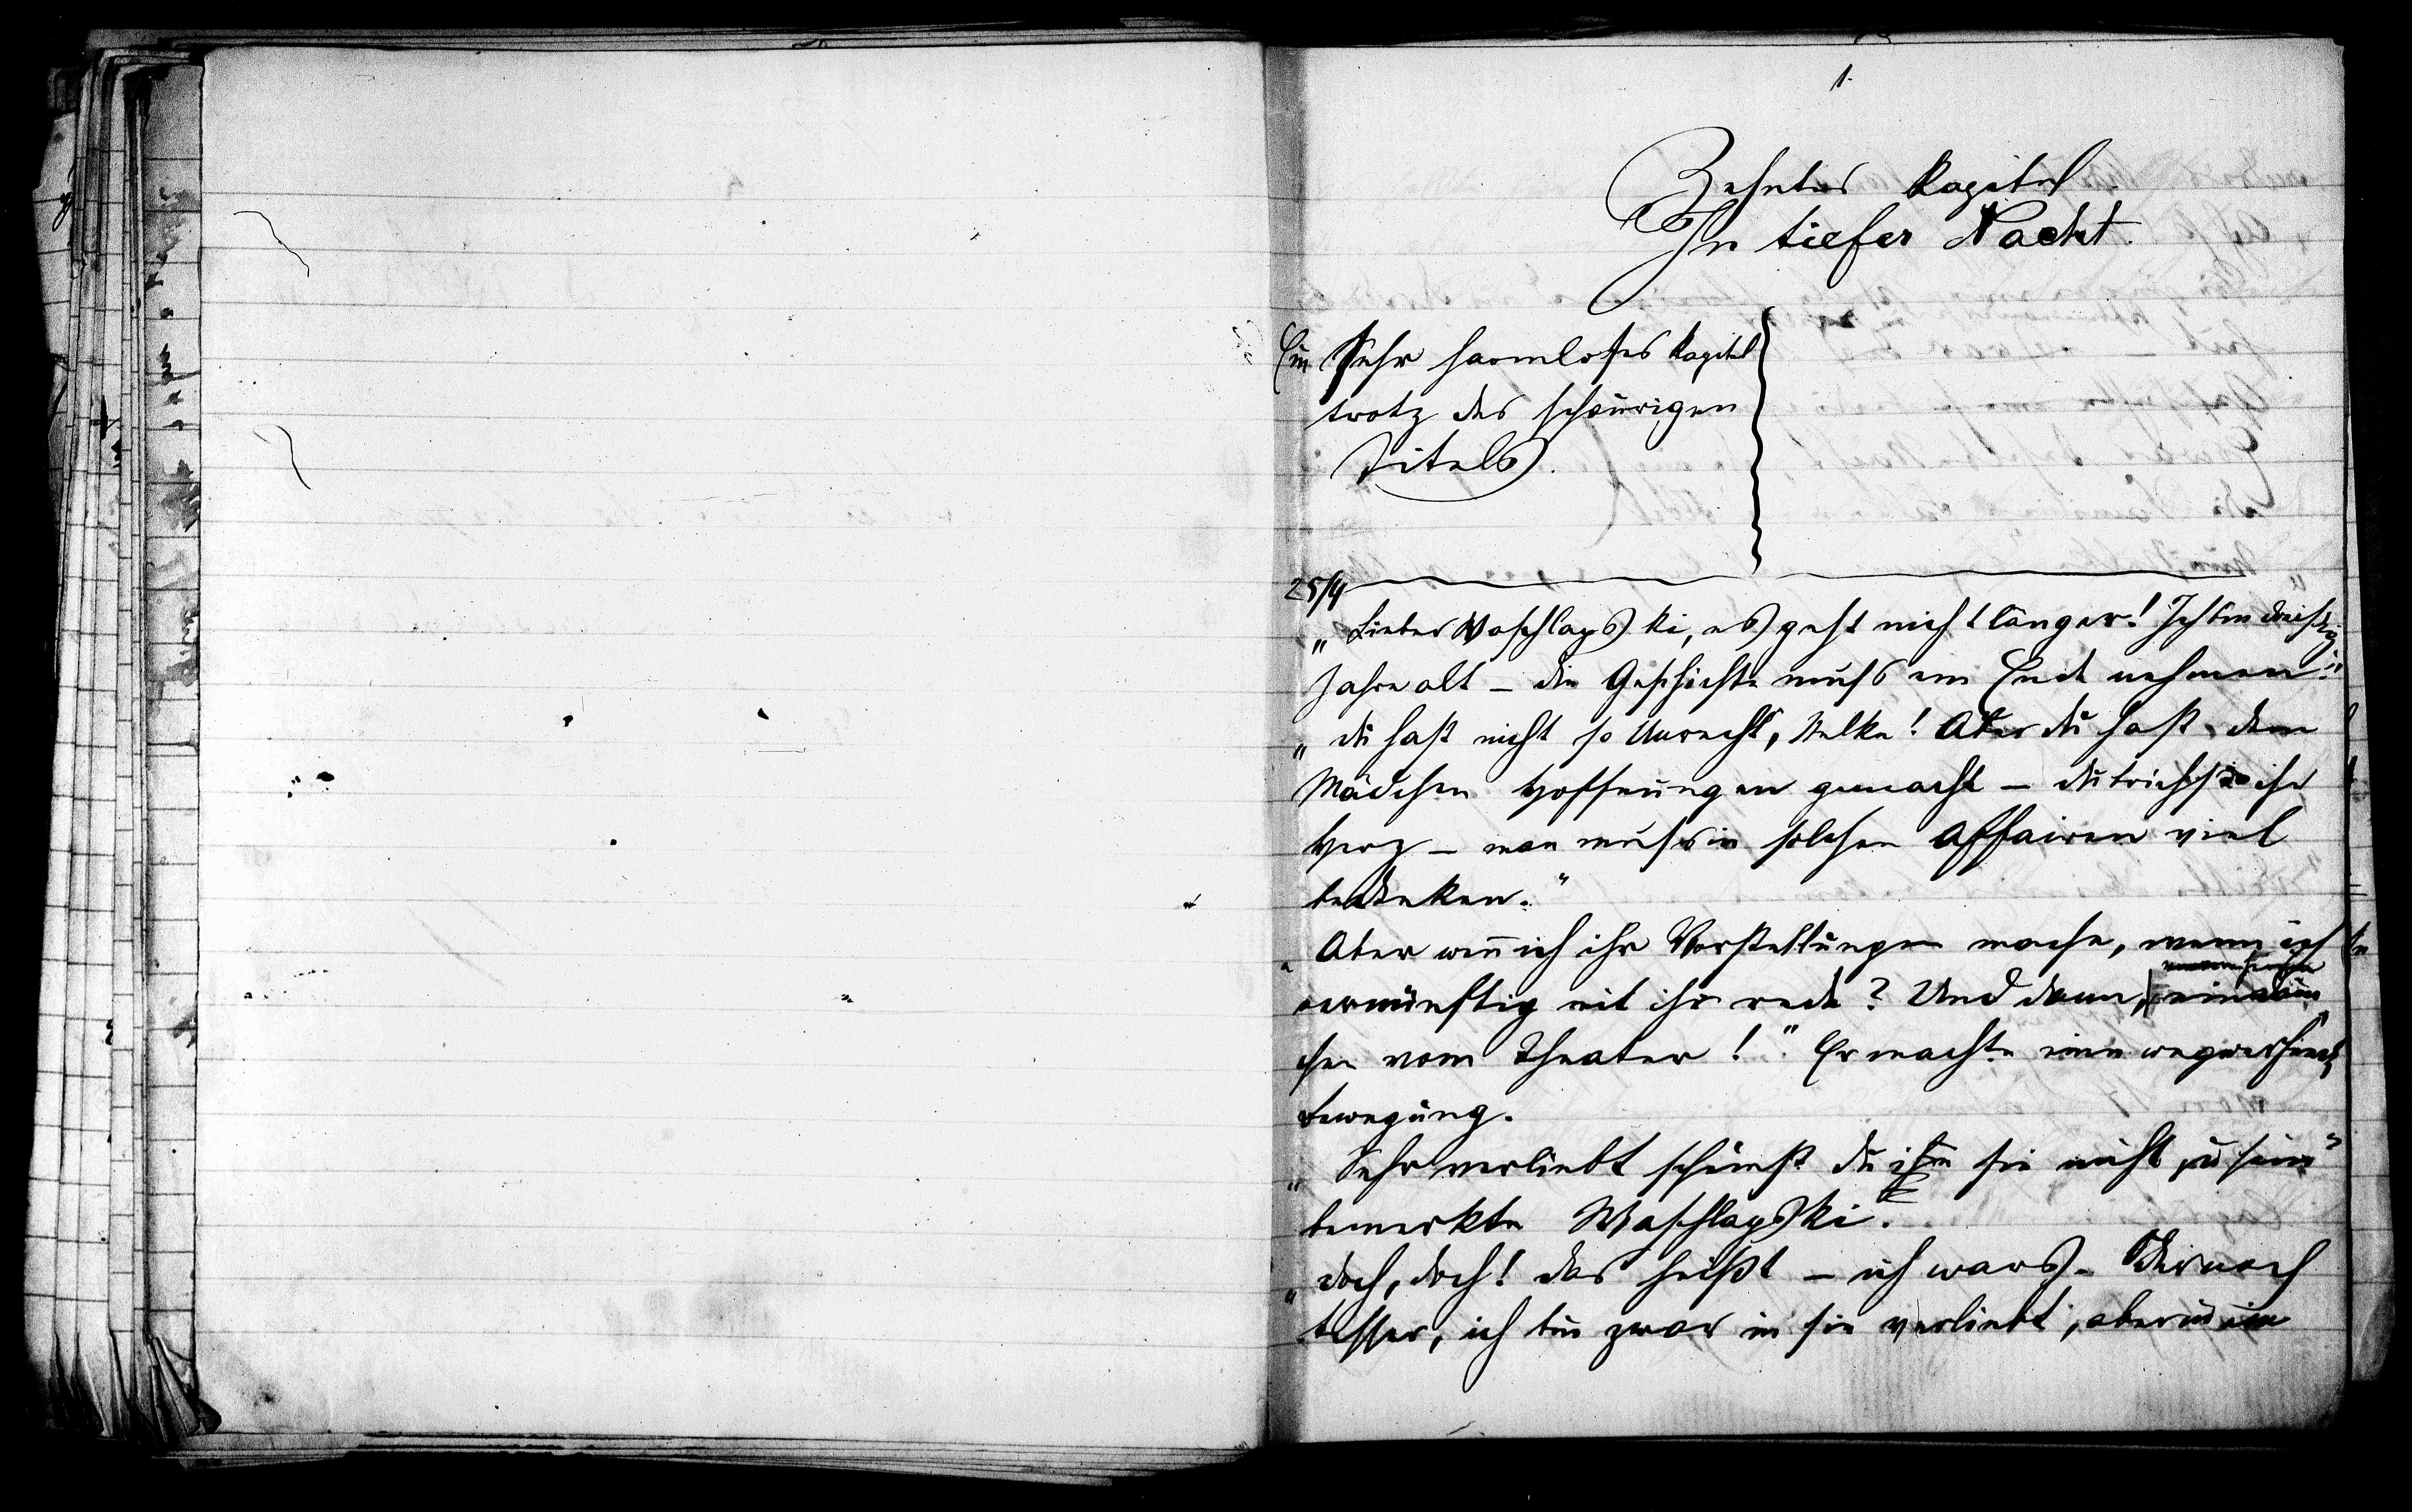 1.
Zehntes Kapitel
In tiefer Nacht.
Ein Sehr harmloses Kapitel
trotz des schaurigen
Titels.
25/4
„Lieber Waschlapski, es geht nicht länger! Ich bin dreißig
Jahre alt – die Geschichte muss ein Ende nehmen."
„du hast nicht so Unrecht, Nelke! Aber du hast dem
Mädchen Hoffnungen gemacht – du brichst ihr
Herz – man muss in solchen Affairen viel
bedenken."
„Aber wenn ich ihr Vorstellungen mache, wenn ich
vernünftig mit ihr rede? Und dann,
chen vom Theater!" Er machte eine wegwerfende
Bewegung.
„Sehr verliebt scheinst du in sie nicht zu sein"
bemerkte Waschlapski.
„doch, doch! das heißt – ich wars. Oder noch
besser, ich bin zwar in sie verliebt, aber